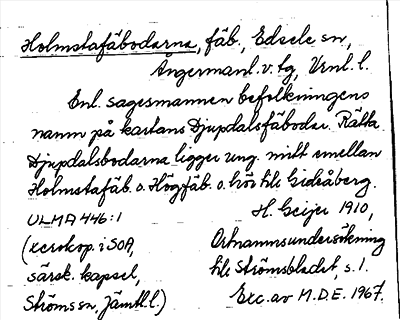 Holmstafäbodarna, fäb., Edsele sn,
Ångermanl. v. tg, Vrnl. l.
Enl. sagesmannen befolkningens
namn på kartans Djupdalsfäbodar. Rätta
Djupdalsbodarna ligger ung. mitt emellan
Holmstafäb. o. Högfäb. o. hör till Gideåberg.
ULMA 446:1 H. Geijer 1910,
(xerokop. i SOA, Ortnamnsundersökning
särsk. kapsel, till Strömsbladet, s. 1.
Ströms sn, Jämtl. l.) Exc. av M.D.E. 1967.